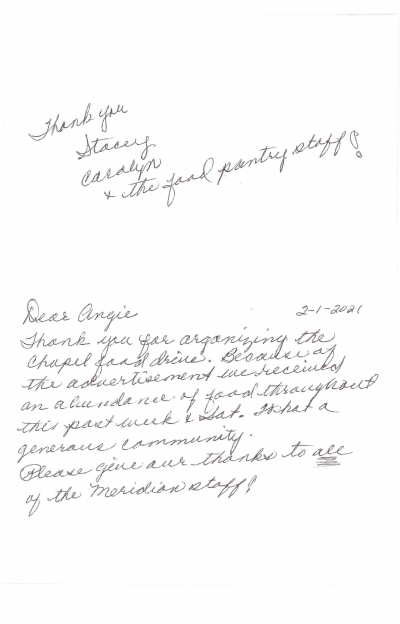 Thank you
Stacey
Carolyn
& the food pantry staff!
Dear Angie 2-1-2021
Thank you for organizing the
Chapel food drive. Because of
the advertisement we received
an abundance of food throughout
this past week & Sat. What a
generous community.
Please give our thanks to all
of the Meridian staff!